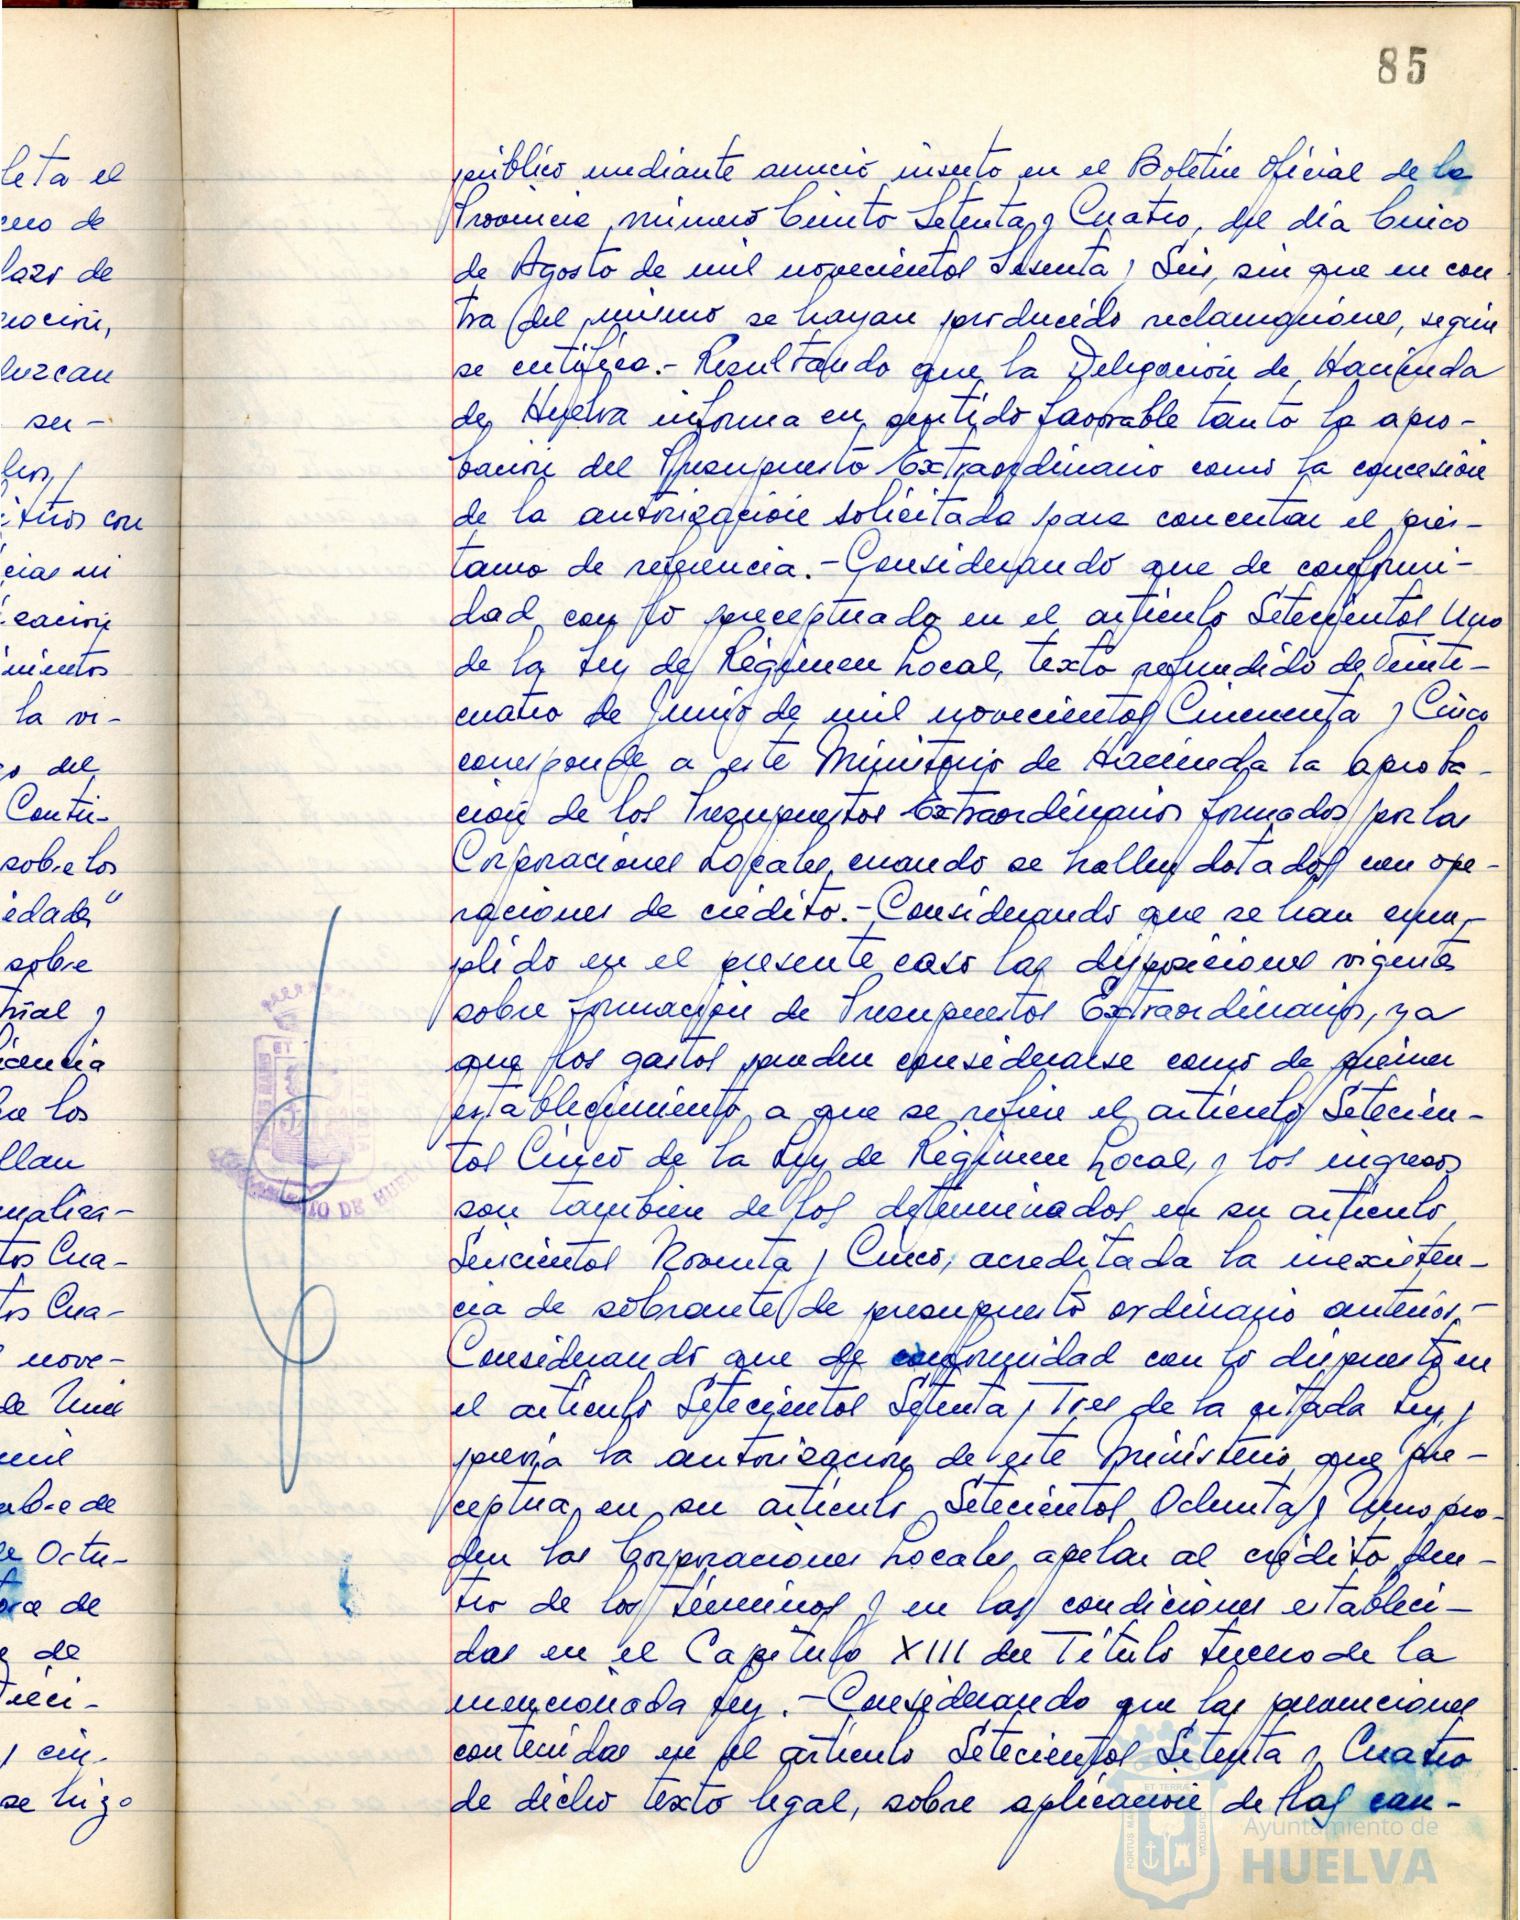 85
público mediante anuncio inserto en el Boletín Oficial de la
Provincia número Ciento Setenta y Cuatro, del día Cinco
de Agosto de mil novecientos Sesenta y Seis, sin que en con-
tra del mismo se hayan producido reclamaciones, según
se certifica.- Resultando que la Delegación de Hacienda
de Huelva informa en sentido favorable tanto la apro-
bación del Presupuesto Extraordinario como la concesión
de la autorización solicitada para concertar el prés-
tamo de referencia.- Considerando que de conformi-
dad con lo preceptuado en el artículo Setecientos Uno
de la Ley de Régimen Local, texto refundido de Veinti-
cuatro de Junio de mil novecientos Cincuenta y Cinco
corresponde a este Ministerio de Hacienda la aproba-
ción de los Presupuestos Extraordinarios formados por las
Corporaciones Locales, cuando se hallen dotados con ope-
raciones de crédito.- Considerando que se han cum-
plido en el presente caso las disposiciones vigentes
sobre formación de Presupuestos Extraordinarios, ya
que los gastos pueden considerarse como de primer
establecimiento a que se refiere el artículo Setecien-
tos Cinco de la Ley de Régimen Local, y los ingresos
son también de los determinados en su artículo
Seiscientos Noventa y Cinco, acreditada la inexisten-
cia de sobrante de presupuesto ordinario anterior.-
Considerando que de conformidad con lo dispuesto en
el artículo Setecientos Setenta y Tres de la citada Ley, y
previa la autorización de este Ministerio que pre-
ceptua en su artículo Setecientos Ochenta y Uno pue-
den las Corporaciones Locales apelar al crédito den-
tro de los términos y en las condiciones estableci-
das en el Capítulo XIII del Título tercero de la
mencionada Ley.- Considerando que las prevenciones
contenidas en el artículo Setecientos Setenta y Cuatro
de dicho texto legal, sobre aplicación de las can-
leta el
lazo de
su-
con
la vi-
del
Contri-
sobre los
sobre
los
Cua-
Cua-
nove-
de
Octu-
de
de
se hizo
Ayuntamiento de
HUELVA